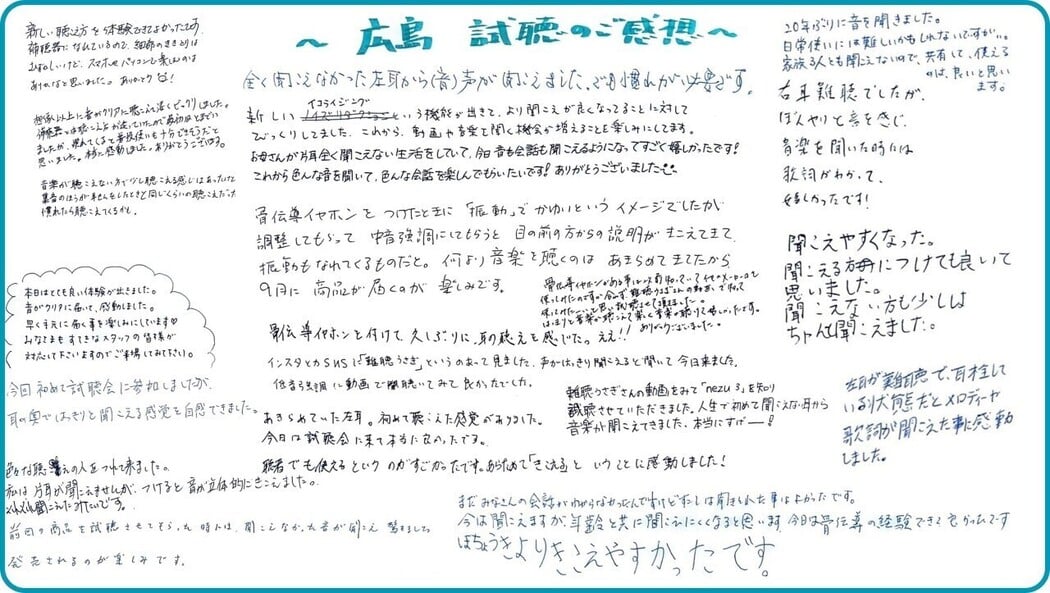 ～ 広島 試聴のご感想 ～
新しい聴こえ方を体験できてよかったです。
補聴器になれているので、細部のききとりは
むずかしいけど、スマホやパソコンで楽しむのは
ありかなと思いました。ありがとう
想像以上に音がクリアに聴こえて凄くビックリしました。
思いました。本当に感動しました。ありがとうございます。
音楽が聴こえない方で少し聴こえる感じはあったけど
慣れたら聴こえてくるかも。
本日はとても良い体験が出来ました。
音がクリアに届いて、感動しました。
早く手元に届く事を楽しみにしています♡
みなさまもすてきなスタッフの皆様が
対応して下さいますのでご来場してみて下さい。
今回初めて試聴会に参加しましたが、
耳の奥ではっきりと聞こえる感覚を自感できました。
色々な聴こえの人をつれて来ました。
私は片耳が聞こえませんが、つけると音が立体的にきこえました。
前回の商品を試聴させてもらった時よりは、聞こえなかった音が聞こえ
発売されるのが楽しみです。
全く聞こえなかった左耳から(音)声が聞こえました、でも慣れが必要です。
イコライジング
新しい という機能が出きて、より聞こえが良くなってることに対して
びっくりしてました。これから、動画や音楽を聞く機会が増えることを楽しみにしてます。
お母さんが片耳全く聞こえない生活をしていて、今日音も会話も聞こえるようになってすごく嬉しかったです!
これから色んな音を聞いて、色んな会話を楽しんでもらいたいです! ありがとうございました
骨伝導イヤホンをつけたときに「振動」でかゆいというイメージでしたが
調整してもらって 中音強調にしてもらうと 目の前の方からの説明がきこえてきて、
振動もなれてくるものだと。何より音楽を聴くのは あきらめてきたから
9月に 商品が届くのが 楽しみです。
ありがとうございました。
骨伝導イヤホンを付けて、久しぶりに、耳の聴えを感じた。ええ!!
インスタとかSNSに「難聴うさぎ」というのあって見ました。声がはっきり聞こえると聞いて今日来ました。
低音強調に動画で聞聴いてみて良かたでした。
あきらめていた左耳。初めて聴こえた感覚がありました。
今日は試聴会に来て本当に良かったです。
難聴うさぎさんの動画をみて「nezu3」を知り
試聴させていただきました、人生で初めて聞こえない耳から
音楽が聞こえてきました、本当にすげー!
聴者でも使えるというのがすごかったです。あらためて「きこえる」ということに感動しました!
まだみなさんの会話がわからなかったんですけど少しは聞きとれた事はよかったです。
今は聞こえますが、年齢と共に聞こえにくくなると思います、今日は骨伝導の経験できて良かったです
ほちょうきよりきこえやすかったです。
20年ぶりに音を聞きました。
日常使いには難しいかもしれないですが…
家族3人とも聞こえないので、共有して、使える
のは、良いと思い
ます。
右耳難聴でしたが、
ぼんやりと音を感じ、
音楽を聞いた時には
歌詞がわかって、
嬉しかったです!
聞こえやすくなった。
聞こえる方につけても良いて
思いました。
聞こえない方も少しは
ちゃんと聞こえました。
左耳が難聴で、耳栓して
いる状態だとメロディーや
歌詞が聞こえた事に感動
しました。